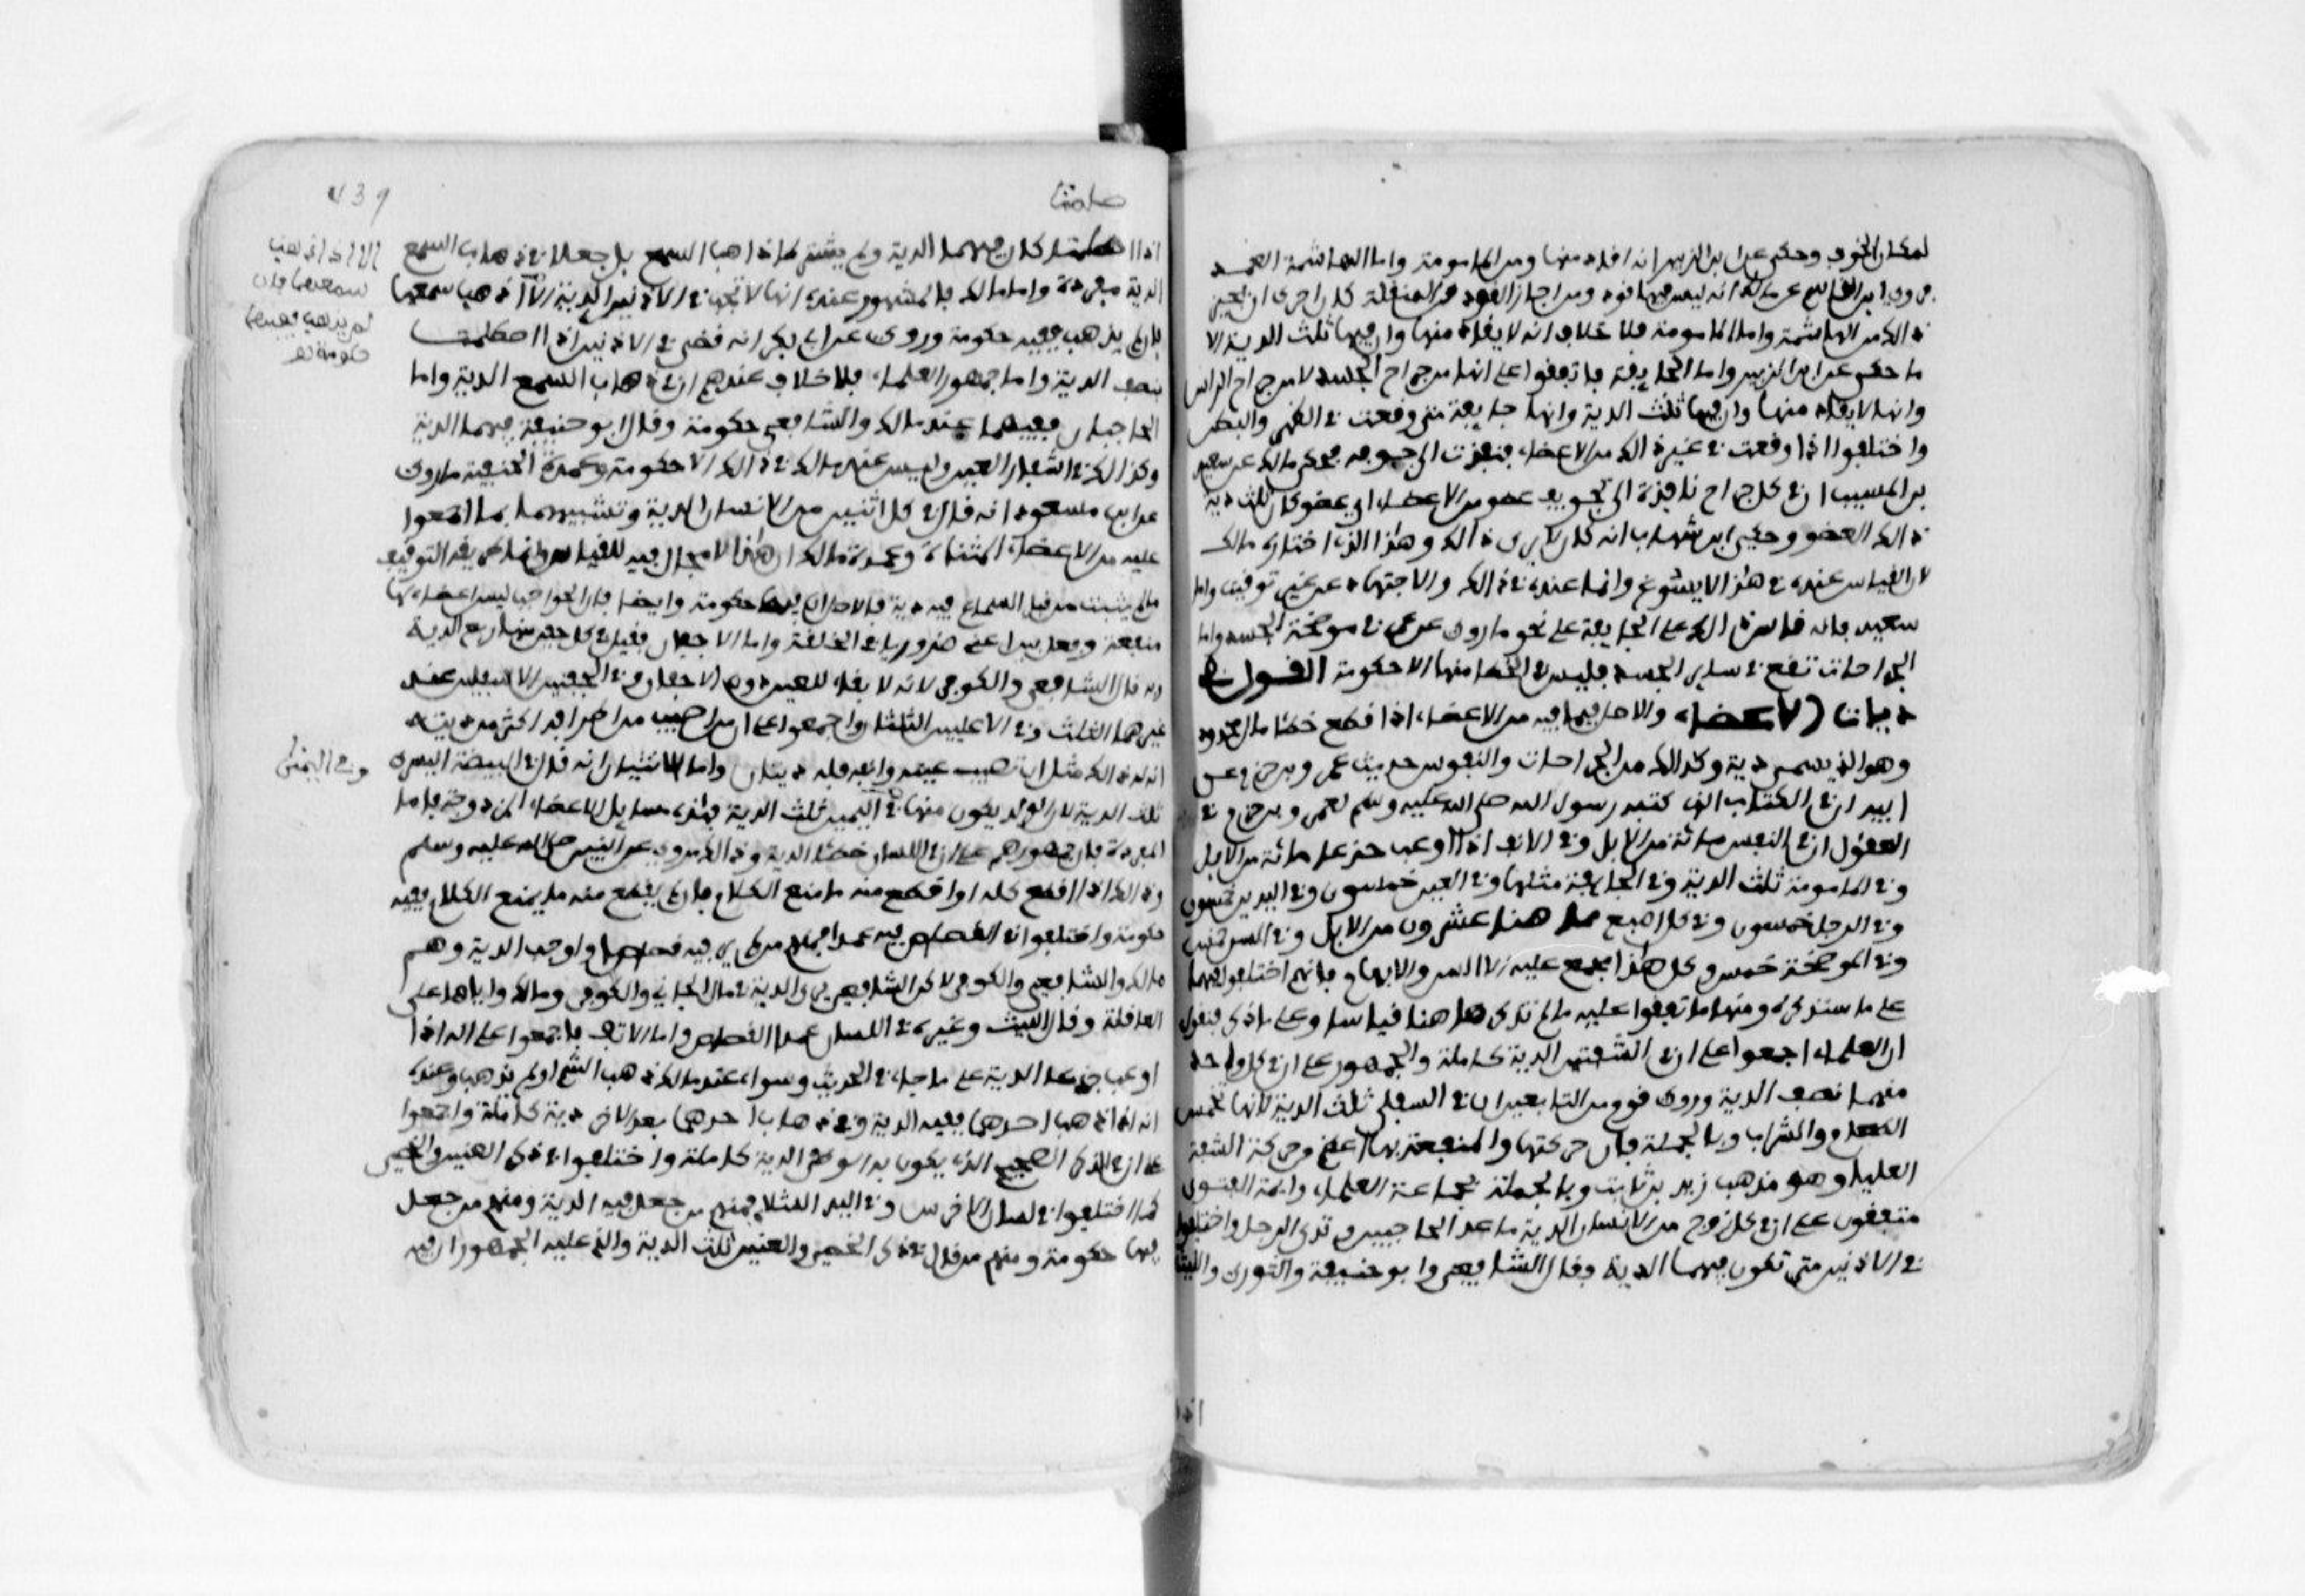 لمكان الخوف وحكي عن ابن الزبير انه افاد منها ومن المامومة واما الهاشمة العمد
فروي ابن القاسم عن مالك انه ليس فيها قود ومن اجاز القود من المنقلة كان احرى ان يجيز
ذالك من الهاشمة واما المامومة فلا خلاف انه لا يقاد منها وان فيها ثلث الدية الا
ما حكي عن ابن الزبير واما الجايفة فاتفقوا على انها من جراح الجسد لا من جراح الراس
وانها لا يقاد منها وان فيها ثلث الدية وانها جايفة متى وقعت في الظهر والبطن
واختلفوا اذا وقعت في غير ذالك من الاعضاء فنفذت الى جوفه فحكى مالك عن سعيد
بن المسيب ان في كل جراح نافذة الى تجويف عضو من الاعضاء اي عضو كان ثلث دية
ذالك العضو وحكى ابن شهاب انه كان لا يرى ذالك وهذا الذي اختاره مالك
لان القياس عنده في هذا لا يسوغ وانما عنده في ذالك الاجتهاد من غير توقيف واما
سعيد فانه قاس ذالك على الجايفة على نحو ما روي عن عمر في موضحة الجسد واما
الجراحات تقع في ساير الجسد فليس في الخطا منها الا حكومة القول في
ديات الاعضاء والاصل فيما فيه من الاعضاء اذا قطع خطئا مال محدود
وهو الذي يسمى دية وكذالك من الجراحات والنفوس حديث عمرو بن حزم عن
ابيه ان في الكتاب الذي كتبه رسول الله صلى الله عليه وسلم لعمرو بن حزم في
العقول ان في النفس مائة من الابل وفي الانف اذا اوعب جدعا مائة من الابل
وفي المامومة ثلث الدية وفي الجايفة مثلها وفي العين خمسون وفي اليد خمسون
وفي الرجل خمسون وفي كل اصبع مما هنا عشرون من الابل وفي السن خمس
وفي الموضحة خمس وكل هذا مجمع عليه الا السن والابهام فانهم اختلفوا فيهما
على ما سنذكره ومنها ما اتفقوا عليه مما لم يذكر هاهنا قياسا وعلى ما ذكر فنقول
ان العلماء اجمعوا على ان في الشفتين الدية كاملة والجمهور على ان في كل واحدة
منهما نصف الدية وروي قوم من التابعين ان في السفلى ثلث الدية لانها تحبس
الطعام والشراب وبالجملة فان حركتها والمنفعة بها اعظم من حركة الشفة
العليا وهو مذهب زيد بن ثابت وبالجملة فجماعة العلماء وايمة الفتوى
متفقون على ان في كل زوج من الانسان الدية ما عدا الحاجبين وثدي الرجل واختلفوا
في الاذنين متى تكون فيهما الدية فقال الشافعي وابو حنيفة والثوري والليث
439
اذا اصطلمتا كان فيهما الدية ولم يشترط اذهاب السمع بل جعلا في ذهاب السمع
الدية مفردة واما مالك فالمشهور عنده انها لا تجب في الاذنين الدية الا اذا ذهب سمعهما
فان لم يذهب ففيه حكومة وروي عن ابي بكر انه قضى في الاذنين اذا اصطلمتا
بنصف الدية واما جمهور العلماء فلا خلاف عندهم ان في ذهاب السمع الدية واما
الحاجبان ففيهما عند مالك والشافعي حكومة وقال ابو حنيفة فيهما الدية
وكذالك في اشفار العين وليس عند مالك في ذالك الا حكومة وعمدة الحنفية ما روي
عن ابن مسعود انه قال في كل اثنين من الانسان الدية وتشبيههما بما اجمعوا
عليه من الاعضاء المثناة وعمدة مالك ان هذا لا مجال فيه للقياس وانما طريقه التوقيف
فما لم يثبت من قبل السماع فيه دية فالاصل ان فيه حكومة وايضا فان الحواجب ليس اعضاء لها
منفعة وفعل بين اعني ضروريا في الخلقة واما الاجفان فقيل في كل جفن منها ربع الدية
وبه قال الشافعي والكوفي لانه لا بقاء للعين دون الاجفان وفي الجفنين الاسفلين عند
غيرهما الثلث وفي الاعليين الثلثان واجمعوا على ان من اصيب من اطرافه اكثر من ديته
ان له ذالك مثل ان تصيب عينه وانفه فله ديتان واما الانثيان انه قال في البيضة اليسرى
وفي اليمنى
ثلثا الدية لان الولد يكون منها في اليمين ثلث الدية فهذه مسايل الاعضاء المزدوجة فاما
المفردة فان جمهورهم على ان في اللسان خطئا الدية وذالك مروي عن النبي صلى الله عليه وسلم
وذالك اذا قطع كله او قطع منه ما منع الكلام فان لم يقطع منه ما يمنع الكلام ففيه
حكومة واختلفوا في القصاص فيه عمدا فمنهم من لم ير فيه قصاصا واوجب الدية وهم
مالك والشافعي والكوفي لاكن الشافعي يرى الدية في مال الجاني والكوفي ومالك واياها على
العاقلة وقال الليث وغيره في اللسان عمدا القصاص واما الانف فاجمعوا على انه اذا
اوعب جدعا الدية على ما جاء في الحديث وسواء عند مالك ذهب الشم او لم يذهب وعنده
انه اذا ذهب احدهما ففيه الدية وفي ذهاب احدهما بعد الاخر دية كاملة واجمعوا
على ان في الذكر الصحيح الذي يكون به الوطئ الدية كاملة واختلفوا في ذكر العنين والخصي
كما اختلفوا في لسان الاخرس وفي اليد الشلا فمنهم من جعل فيه الدية ومنهم من جعل
فيها حكومة ومنهم من قال في ذكر الخصي والعنين ثلث الدية والذي عليه الجمهور ان فيه